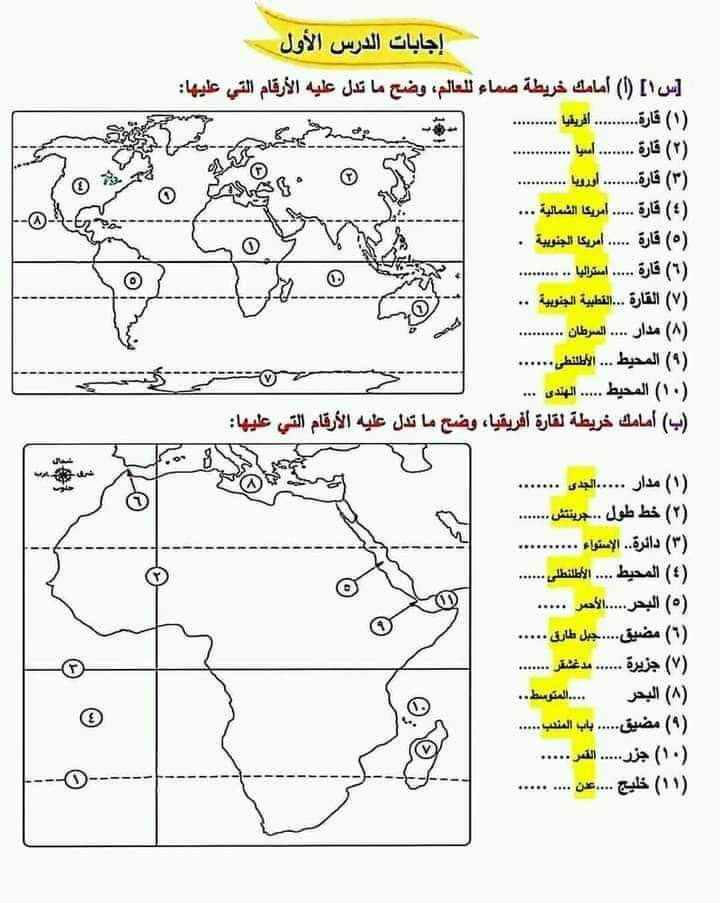 إجابات الدرس الأول
[س١] (أ) أمامك خريطة صماء للعالم، وضح ما تدل عليه الأرقام التي عليها:
(١) قارة......... أفريقيا ..........
(٢) قارة ........ أسيا ............
(٣) قارة........ أوروبا ..........
(٤) قارة ..... أمريكا الشمالية ...
(٥) قارة ..... أمريكا الجنوبية .
(٦) قارة ..... استراليا .. .........
(٧) القارة ...القطبية الجنوبية ..
(٨) مدار .... السرطان ..........
(٩) المحيط ... الأطلنطى......
(١٠) المحيط ..... الهندى ...
شمال
شرق غرب
جنوب
٤
٩
٣
٢
٨
١
٥
١٠
٦
٧
(ب) أمامك خريطة لقارة أفريقيا، وضح ما تدل عليه الأرقام التي عليها:
(١) مدار .....الجدى .......
(٢) خط طول ...جرينتش.......
(٣) دائرة.. الإستواء ..........
(٤) المحيط .... الأطلنطلى......
(٥) البحر.....الأحمر .....
(٦) مضيق.....جبل طارق .....
(٧) جزيرة ...... مدغشقر .......
(٨) البحر ....المتوسط..
(٩) مضيق..... باب المندب .....
(١٠) جزر..... القمر .....
(١١) خليج ....عدن .... .....
شمال
شرق غرب
جنوب
٦
٨
٢
٥
١١
٩
٣
٤
١٠
٧
١